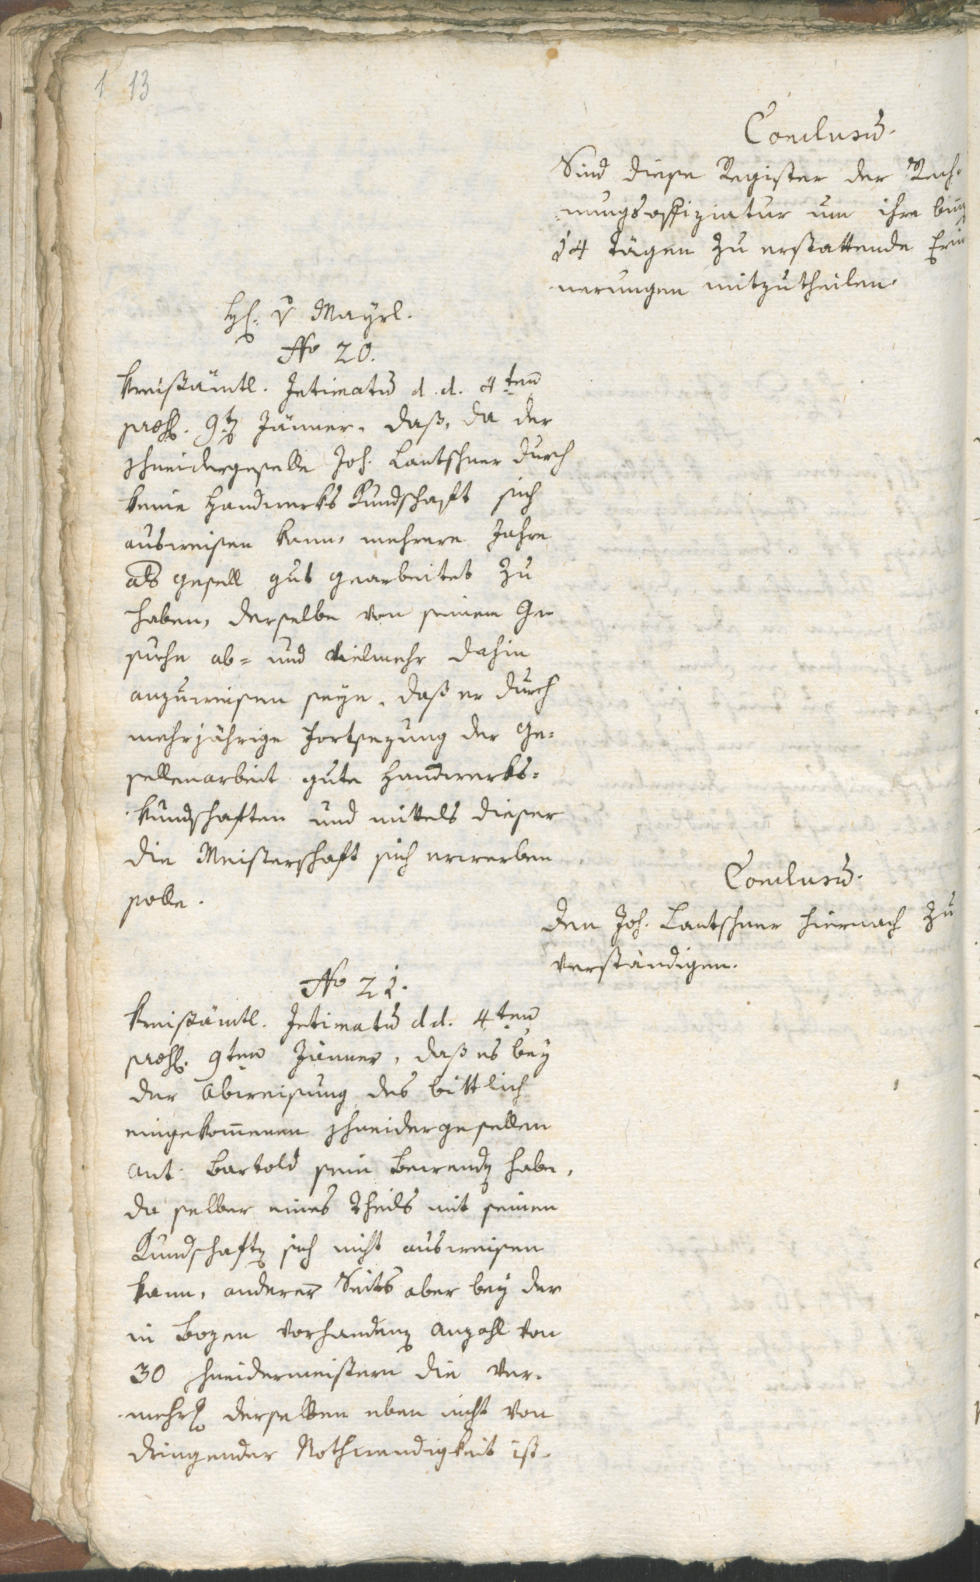 1 13
Conclusũ.
Sind diese Register der Rech-
nungsoffiziatur um ihre binĕ
14 tägen zu erstattende Erin
nerungen mitzutheilen.
H. v Mayrl.
No 20.
Kreisämtl. Intimatũ d. d. 4ten
praes. 9ten Jänner. daß, da der
Schneidergeselle Joh. Lantschner durch
keine Handwerks Kundschaft sich
ausweisen kann, mehrere Jahre
als gesell gut gearbeitet zu
haben, derselbe von seinem Ge-
suche ab- und vielmehr dahin
anzuweisen seye, daß er durch
mehrjährige Fortsezung der Ge-
sellenarbeit gute Handwerks-
kundschaften und mittels dieser
die Meisterschaft sich erwerben
solle.
Conclusũ.
Den Joh. Lantschner hiernach zu
verständigen.
No 21.
Kreisämtl. Intimatũ d d. 4ten
praes. 9ten Jänner, daß es bey
der Abweisung des bittlich
eingekom̅enen Schneidergesellen
Ant. Bartold sein Bewenden habe,
da selber eines Theils mit seinen
Kundschaften sich nicht ausweisen
kann, anderer Seits aber bey der
in Bozen vorhandenen Anzahl von
30 Schneidermeistern die Ver-
mehrung derselben eben nicht von
dringender Nothwendigkeit ist.